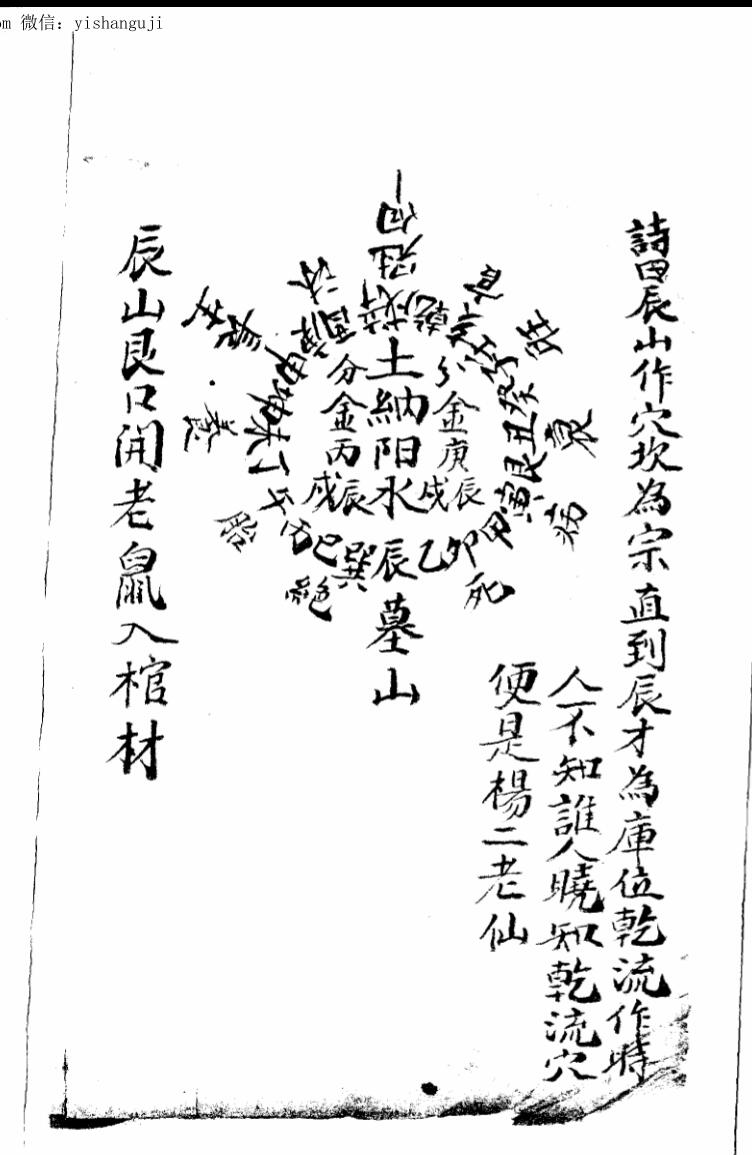 om 微信: yishanguji
詩曰辰山作穴坎為宗直到辰才為庫位乾流作時
人不知誰人曉知乾流穴
便是楊二老仙
向冠
土納阳水辰墓山
分金庚辰
戍
分金丙辰
戍
乾
亥
壬
子
癸
丑
艮
寅
甲
卯
乙
巽
巳
丙
午
丁
未
坤
申
庚
酉
辛
戍
官
旺
衰
病
死
絕
胎
養
長生
沐
辰山艮口開老鼠入棺材